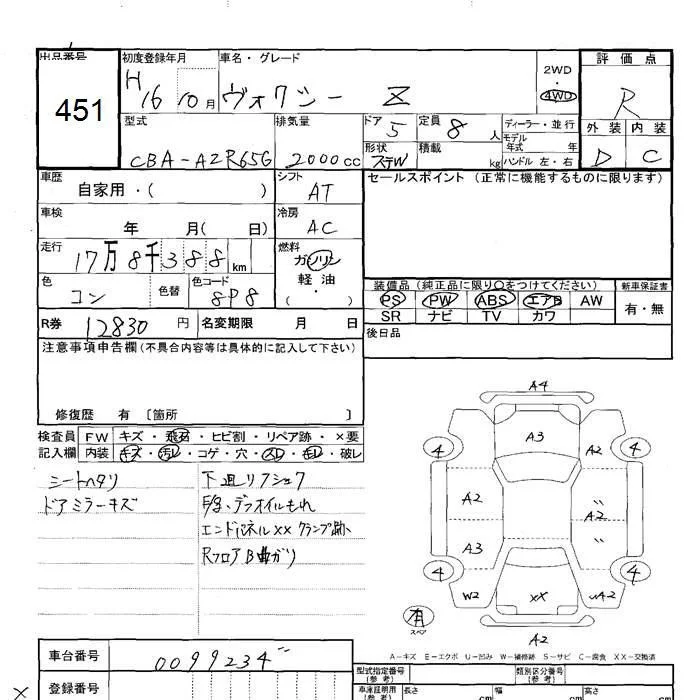 出品番号 初度登録年月 車名・グレード 評価点
451 H16 10月 ヴォクシー Z 2WD・4WD R
型式 排気量 ドア 定員 ディーラー・並行 外装 内装
CBA-AZR65G 2000cc 5 8人 モデル年式 年 D C
形状 積載
ステW kg ハンドル 左・右
車歴 シフト セールスポイント (正常に機能するものに限ります)
自家用・( ) AT
車検 冷房
年 月( 日) AC
走行 燃料
17万8千388km ガソリン
軽油
・( )
色 色替 色コード 装備品 (純正品に限り○をつけてください) 新車保証書
コン 8P8 PS PW ABS エアB AW 有・無
SR ナビ TV カワ
R券 12830円 名変期限 月 日 後日品
注意事項申告欄(不具合内容等は具体的に記入して下さい)
修復歴 有 〔箇所 〕
検査員 FW キズ・飛石・ヒビ割・リペア跡・×要
記入欄 内装 キズ・汚レ・コゲ・穴・スレ・モレ・破レ
シートヘタリ 下廻リフシュク
ドアミラーキズ デフオイルもれ
エンドパネルXX クランプ跡
RフロアB曲ガリ
A4
A3 A2
4 4
A2 A2
A3
4 4
W2 XX A2
有 スペア
A2
A-キズ E-エクボ U-凹み W-補修跡 S-サビ C-腐食 XX-交換済
車台番号 0099234
登録番号
型式指定番号(参考) 類別区分番号(参考)
車庫証明用(参考) 長さ cm 幅 cm 高さ
×